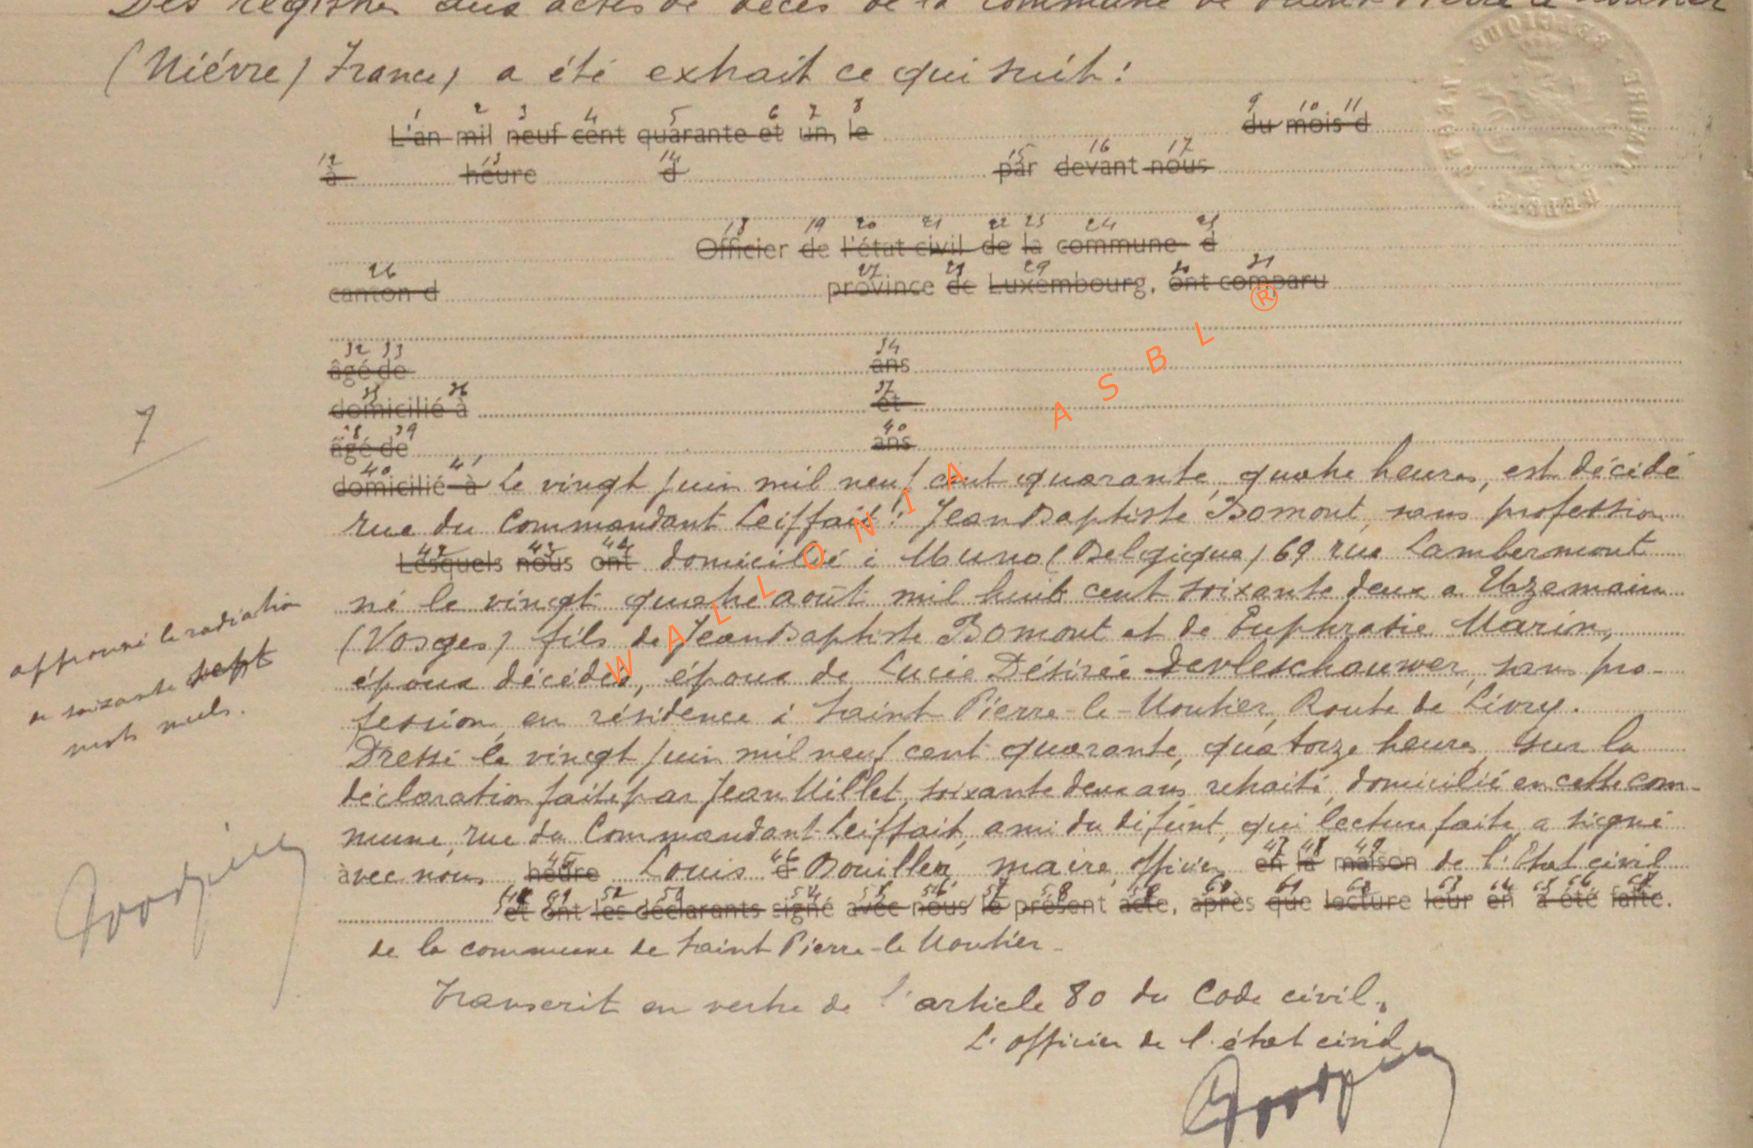 Des registres aux actes de décès de la commune de Saint-Pierre le Moutier
(Nièvre) France, a été extrait ce qui suit:
1 2 3 4 5 6 7 8 9 10 11
L'an mil neuf cent quarante et un, le du mois d
12 13 14 15 16 17
à heure d par devant nous
18 19 20 21 22 23 24 25
Officier de l'état civil de la commune d
26 27 28 29 30 31
canton d province de Luxembourg, ont comparu
32 33 34
âgé de ans
35 36 37
domicilié à et
38 39 40
âgé de ans
40 41
domicilié à Le vingt juin mil neuf cent quarante, quatre heures, est décédé
rue du Commandant Leiffait: Jean Baptiste Bomont, sans profession
42 43 44
Lesquels nous ont domicilié à Muno (Belgique) 69 rue Lambermont
né le vingt quatre août mil huit cent soixante deux a Uzemain
(Vosges) fils de Jean Baptiste Bomont et de Euphrasie Marin,
époux décédés, époux de Lucie Désirée Devleschauwer, sans pro-
fession, en résidence à Saint Pierre-le-Moutier, Route de Livry.
Dressé le vingt juin mil neuf cent quarante, quatorze heures, sur la
déclaration faite par Jean Millet, soixante deux ans, retraité, domicilié en cette com-
mune, rue du Commandant Leiffait, ami du défunt, qui lecture faite a signé
45 46 47 48 49
avec nous heure Louis et Bouiller, maire, officier en la maison de l'Etat civil
51 52 53 54 55 56 57 58 60 61 62 63 64 65 66
et ont les déclarants signé avec nous le présent acte, après que lecture leur en a été faite.
de la commune de Saint Pierre-le Moutier.
Transcrit en vertu de l'article 80 du Code civil.
L'officier de l'état civil,
7
approuvé la radiation
de soixante sept
mots nuls.
WALLONIA ASBL ®